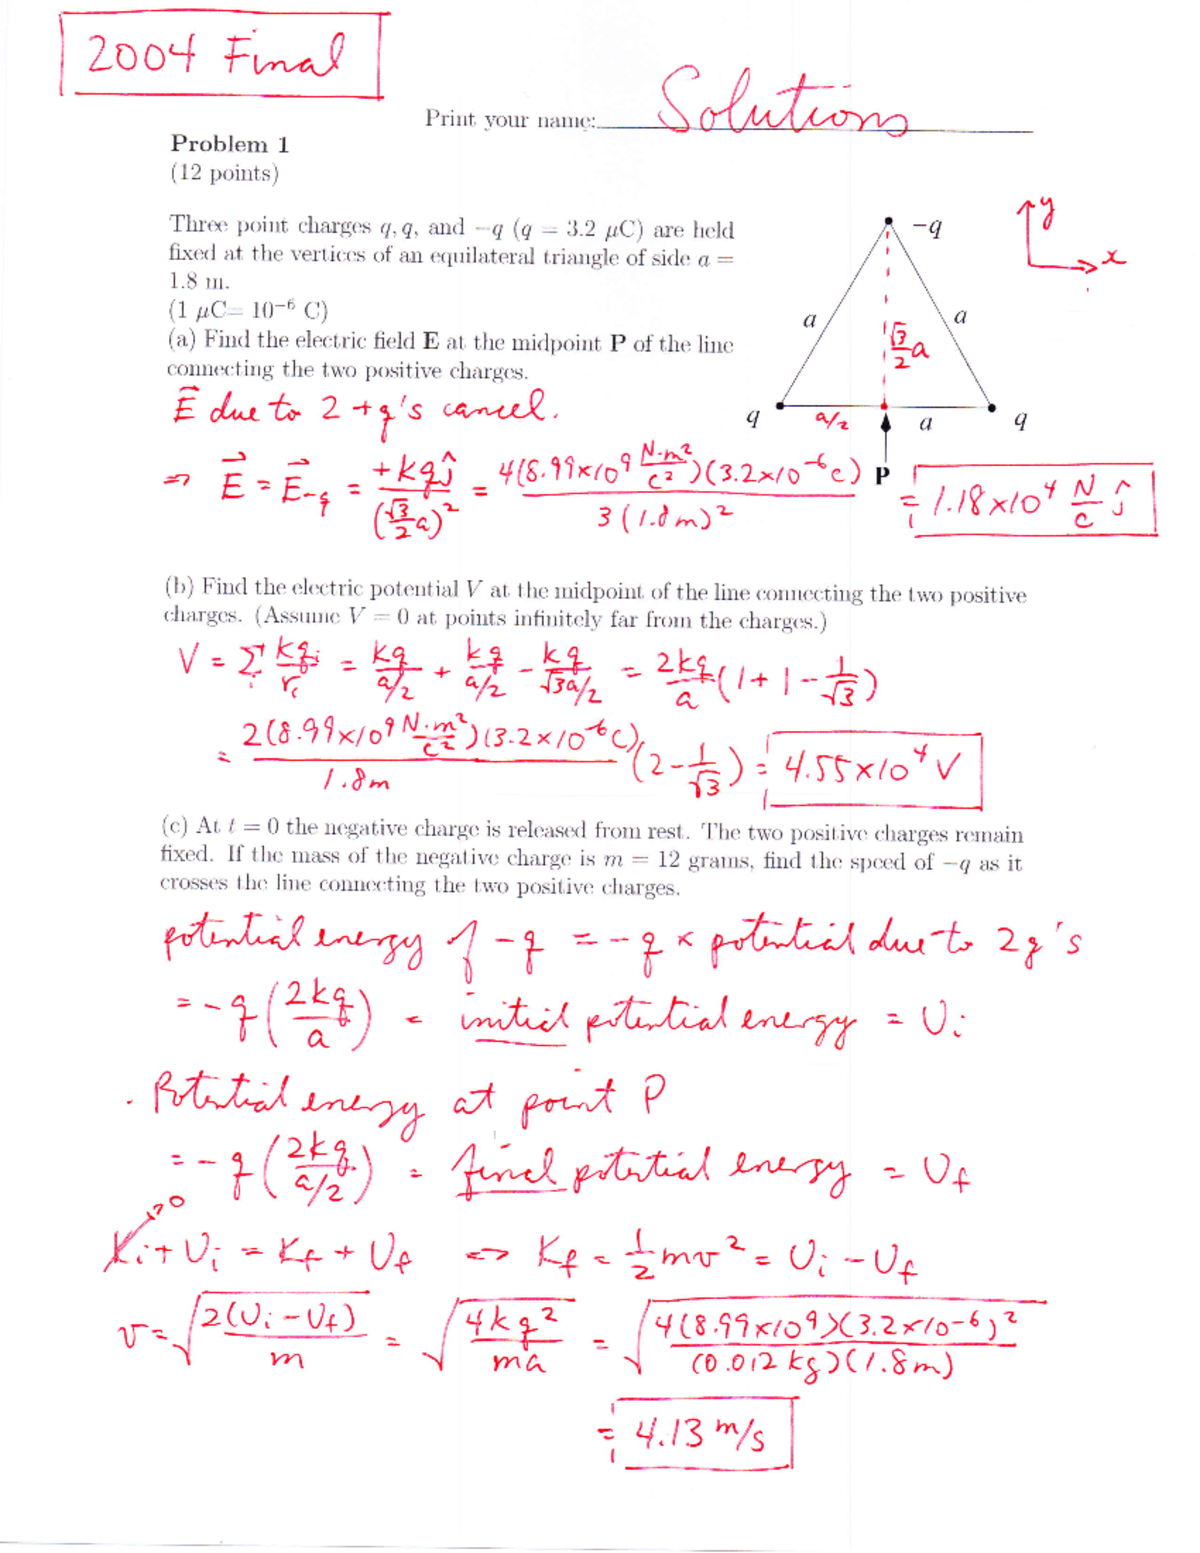 2004 Final
Solutions
Print your name:
Problem 1
(12 points)
Three point charges q, q, and −q (q = 3.2 μC) are held
fixed at the vertices of an equilateral triangle of side a =
1.8 m.
(1 μC= 10⁻⁶ C)
(a) Find the electric field E at the midpoint P of the line
connecting the two positive charges.
y
x
−q
a
a
√3/2 a
q
a/2
a
q
P
E⃗ due to 2 +q's cancel.
⇒ E⃗ = E⃗₋q = +kqĵ / (√3/2 a)² = 4(8.99×10⁹ N·m²/C²)(3.2×10⁻⁶C) / 3(1.8m)² = 1.18×10⁴ N/C ĵ
(b) Find the electric potential V at the midpoint of the line connecting the two positive
charges. (Assume V = 0 at points infinitely far from the charges.)
V = Σᵢ kqᵢ/rᵢ = kq/(a/2) + kq/(a/2) − kq/(√3a/2) = 2kq/a (1+1−1/√3)
= 2(8.99×10⁹ N·m²/C²)(3.2×10⁻⁶C) / 1.8m (2−1/√3) = 4.55×10⁴ V
(c) At t = 0 the negative charge is released from rest. The two positive charges remain
fixed. If the mass of the negative charge is m = 12 grams, find the speed of −q as it
crosses the line connecting the two positive charges.
potential energy of −q = −q × potential due to 2q's
= −q (2kq/a) = initial potential energy = Uᵢ
Potential energy at point P
= −q (2kq/(a/2)) = final potential energy = U_f
→0
Kᵢ + Uᵢ = K_f + U_f ⇒ K_f = ½mv² = Uᵢ − U_f
v = √(2(Uᵢ − U_f)/m) = √(4kq²/ma) = √(4(8.99×10⁹)(3.2×10⁻⁶)² / (0.012 kg)(1.8m))
= 4.13 m/s